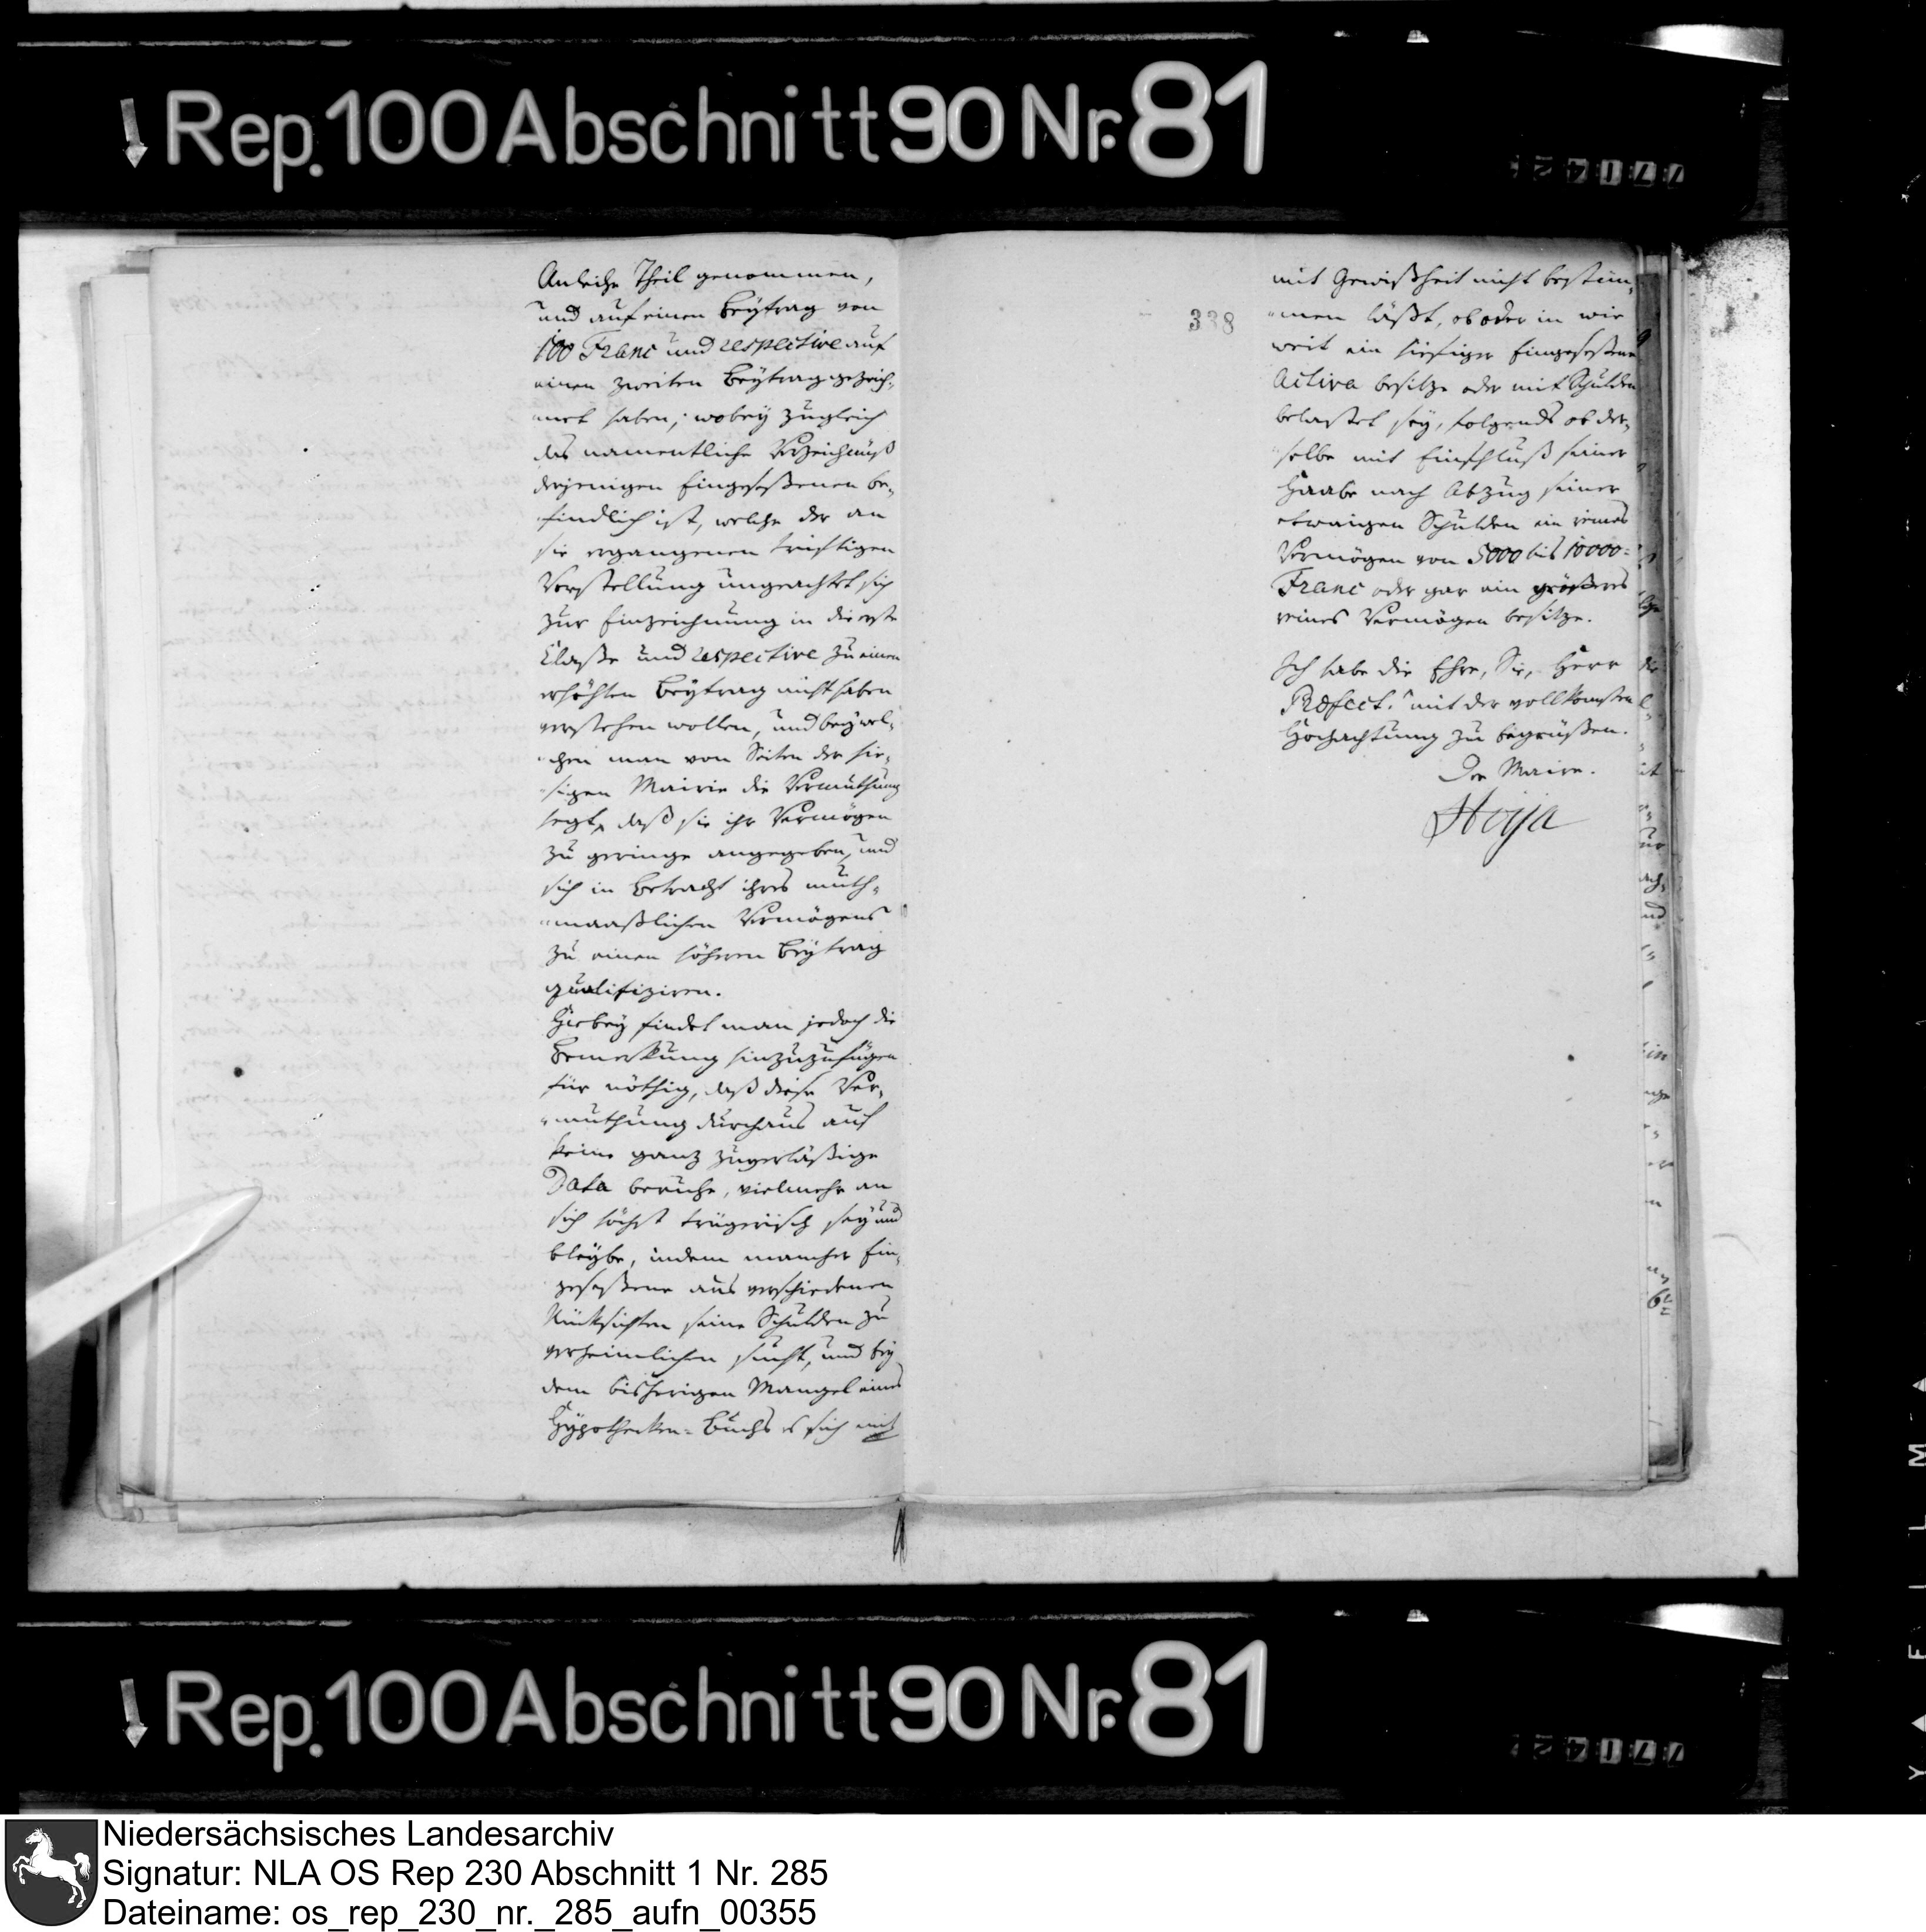 Rep. 100 Abschnitt 90 Nr. 81
Anleihe Theil genommen,
und auf einen Beytrag von
100 Franc und respective auf
einen zweiten Beytrag gezeich„
„net haben; wobey zugleich
das namentliche Verzeichniß
derjenigen Eingeseßenen be„
findlich ist, welche der an
sie ergangenen triftigen
Vorstellung ungeachtet sich
zur Einzeichnung in die erste
Claße und respective zu einen
erhöhten Beytrag nicht haben
verstehen wollen, und bey wel„
„chen man von Seiten der hie„
„sigen Mairie die Vermuthung
hegt, daß sie ihr Vermögen
zu geringe angegeben, und
sich in Betracht ihres muth„
„maaßlichen Vermögens
zu einen höhern Beytrag
qualifiziren.
Hierbey findet man jedoch die
Bemerkung hinzuzufügen
für nöthig, daß diese Ver„
„muthung durchaus auf
keine ganz zuverläßige
Data beruhe, vielmehr an
sich höchst trügerisch sey und
bleybe, indem mancher Ein„
geseßene aus verschiedenen
Rücksichten seine Schulden zu
verheimlichen sucht, und bey
dem bisherigen Mangel eines
Hypotheken=Buchs es sich mit
338
mit Gewißheit nicht bestim„
„men läßt, ob oder in wie
weit ein hiesiger Eingeseßener
Activa besitze oder mit Schulden
belastet sey, folgends ob der„
„selbe mit Einschluß seiner
Haabe nach Abzug seiner
etwaigen Schulden ein reines
Vermögen von 5000 bis 10000=
Franc oder gar ein größeres
reines Vermögen besitze.
Ich habe die Ehre, Sie, Herr
Præfect! mit der vollkomsten
Hochachtung zu begrüßen.
Der Maire.
Rep. 100 Abschnitt 90 Nr. 81
Niedersächsisches Landesarchiv
Signatur: NLA OS Rep 230 Abschnitt 1 Nr. 285
Dateiname: os_rep_230_nr._285_aufn_00355